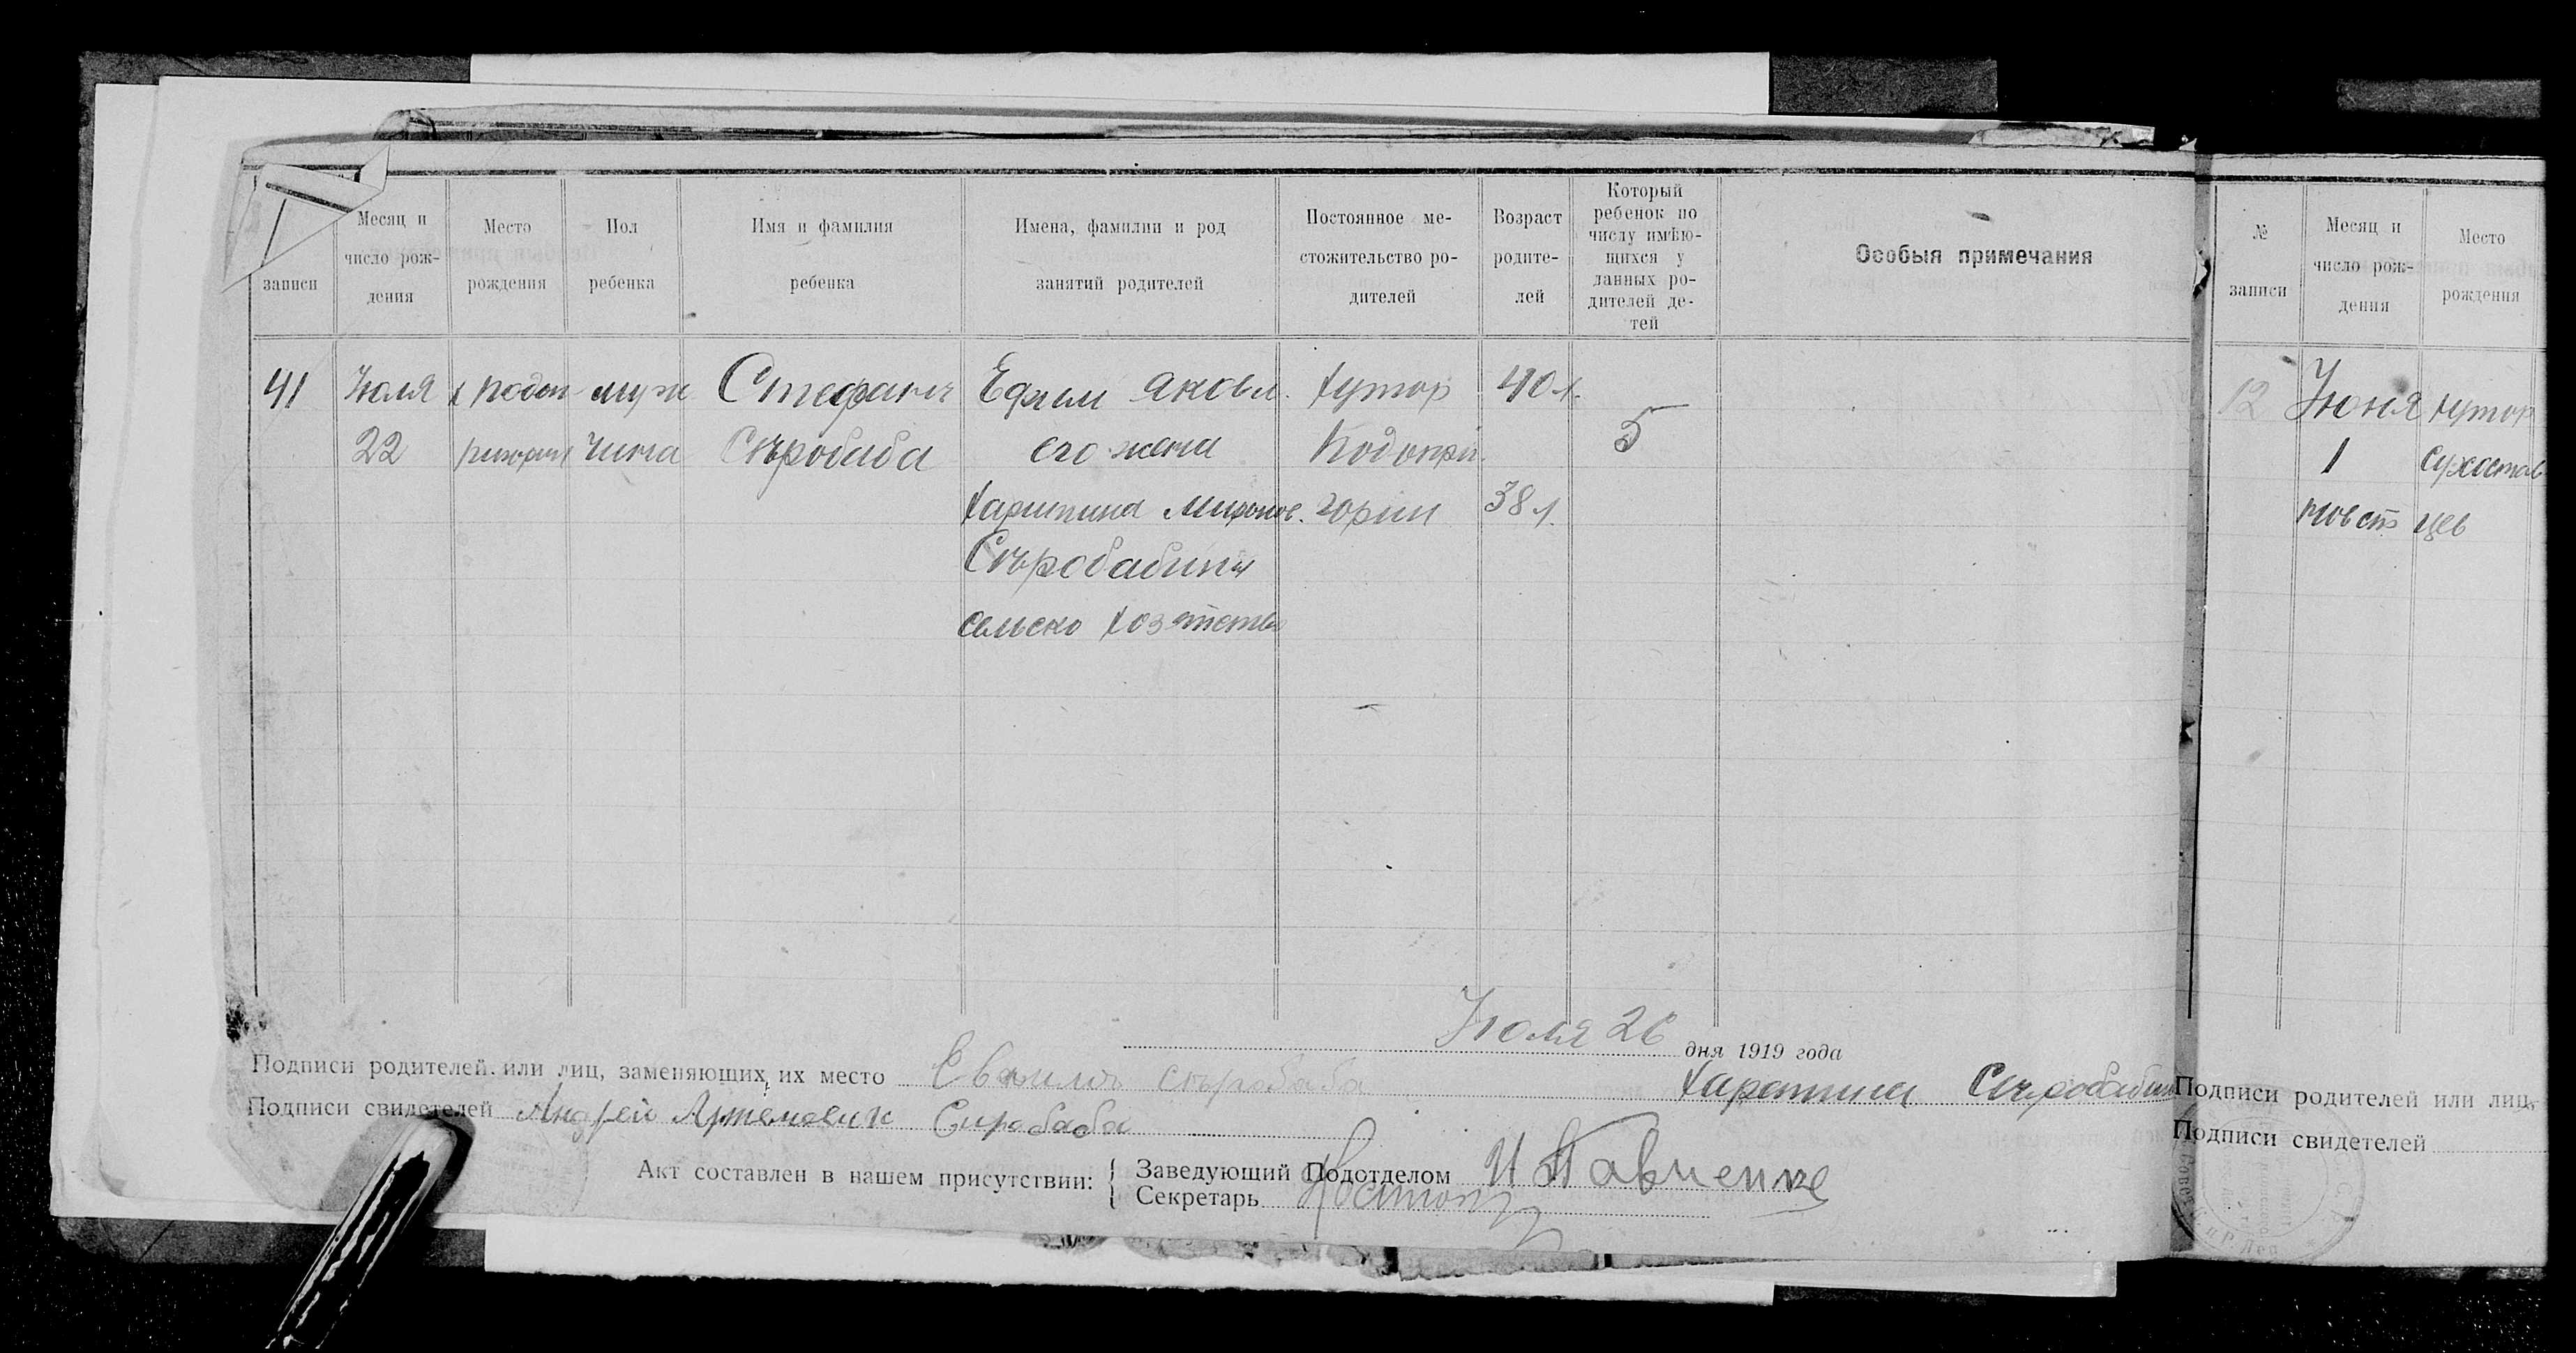 записи
Месяц и
число рож-
дения
Место
рождения
Пол
ребенка
Имя и фамилия
ребенка
Имена, фамилии и род
занятий родителей
Постоянное ме-
стожительство ро-
дителей
Возраст
родите-
лей
Который
ребенок по
числу имѣю-
щихся у
данных ро-
дителей де-
тей
Особыя примечания
41
Июля
22
муж
чина
Стефанъ
Сыробаба
Ефим Яковл.
его жена
Харитина Миронов.
Сыробабины
сельско
хутор
40 л.
38 л.
5
Июля 26 дня 1919 года
Подписи родителей или лиц, заменяющих их место сыробаба
Подписи свидетелей Андрей Артемович Сиробаба
Акт составлен в нашем присутствии:
Заведующий Подотделом И Павленко
Секретарь
№
записи
Месяц и
число рож-
дения
Место
рождения
12
Июня
1
хутор
Подписи родителей или лиц,
Подписи свидетелей